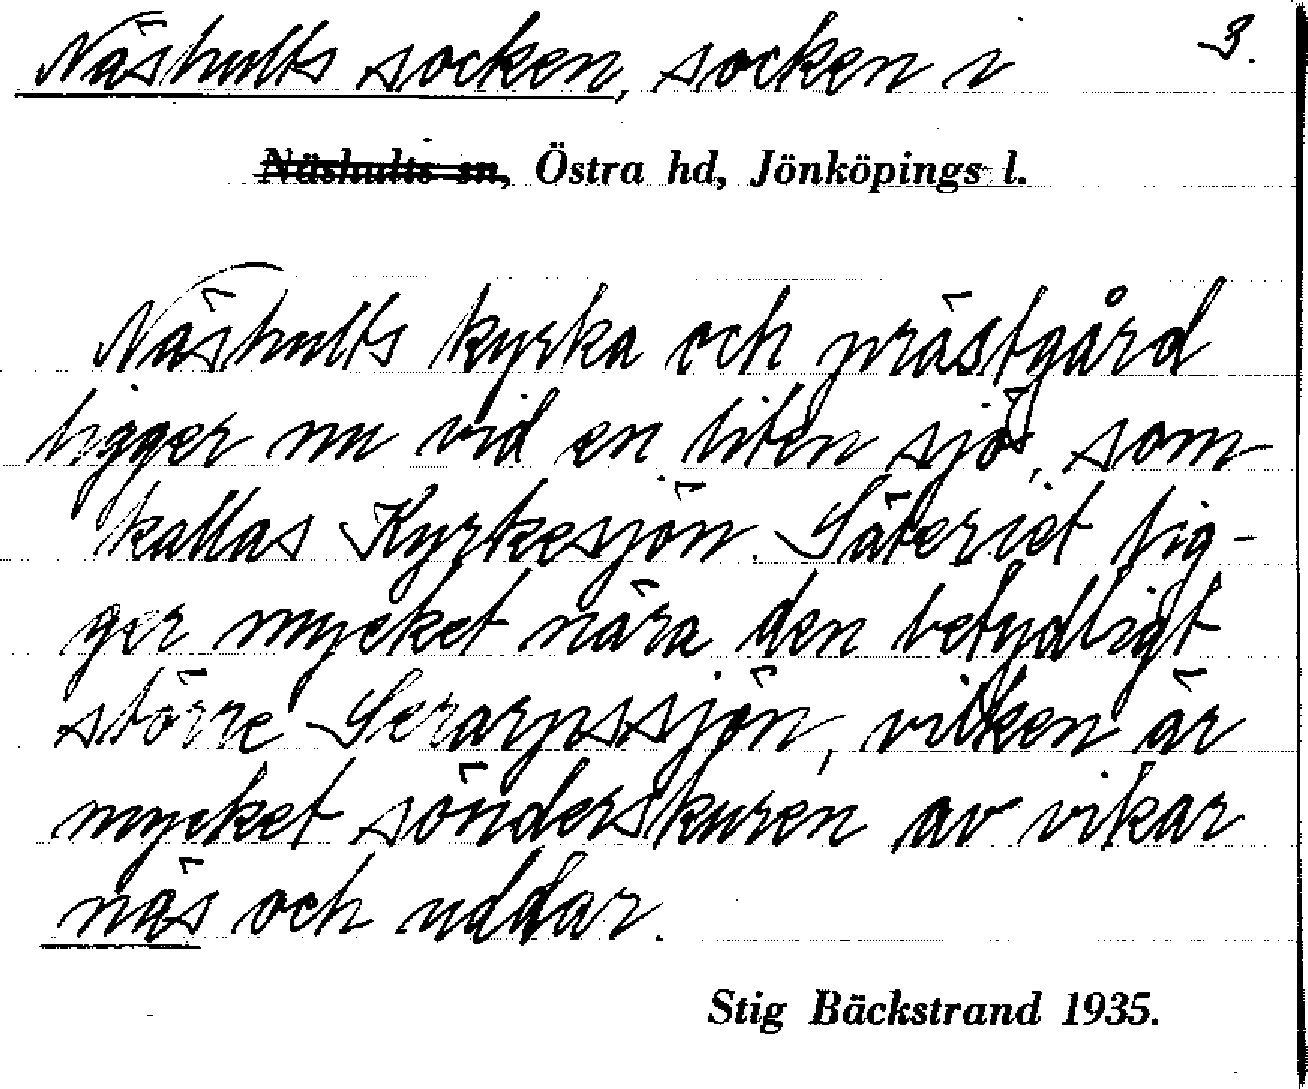 Näshults socken, socken i 3.
Näshults sn, Östra hd, Jönköpings l.
Näshults kyrka och prästgård
ligger nu vid en liten sjö, som
kallas Kyrkesjön. Säteriet lig-
ger mycket nära den betydligt
större Serarpssjön, vilken är
mycket sönderskuren av vikar
näs och uddar.
Stig Bäckstrand 1935.